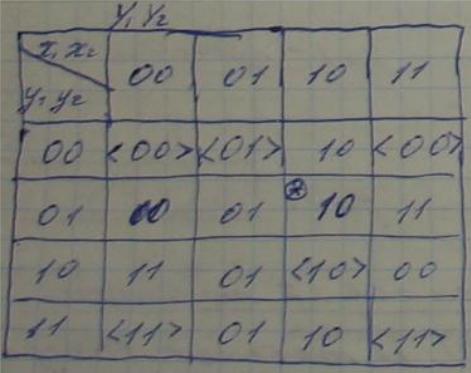 Y₁ Y₂
x₁ x₂ 00 01 10 11
y₁ y₂
00 <00> <01> 10 <00>
01 00 01 ⊛ 10 11
10 11 01 <10> 00
11 <11> 01 10 <11>